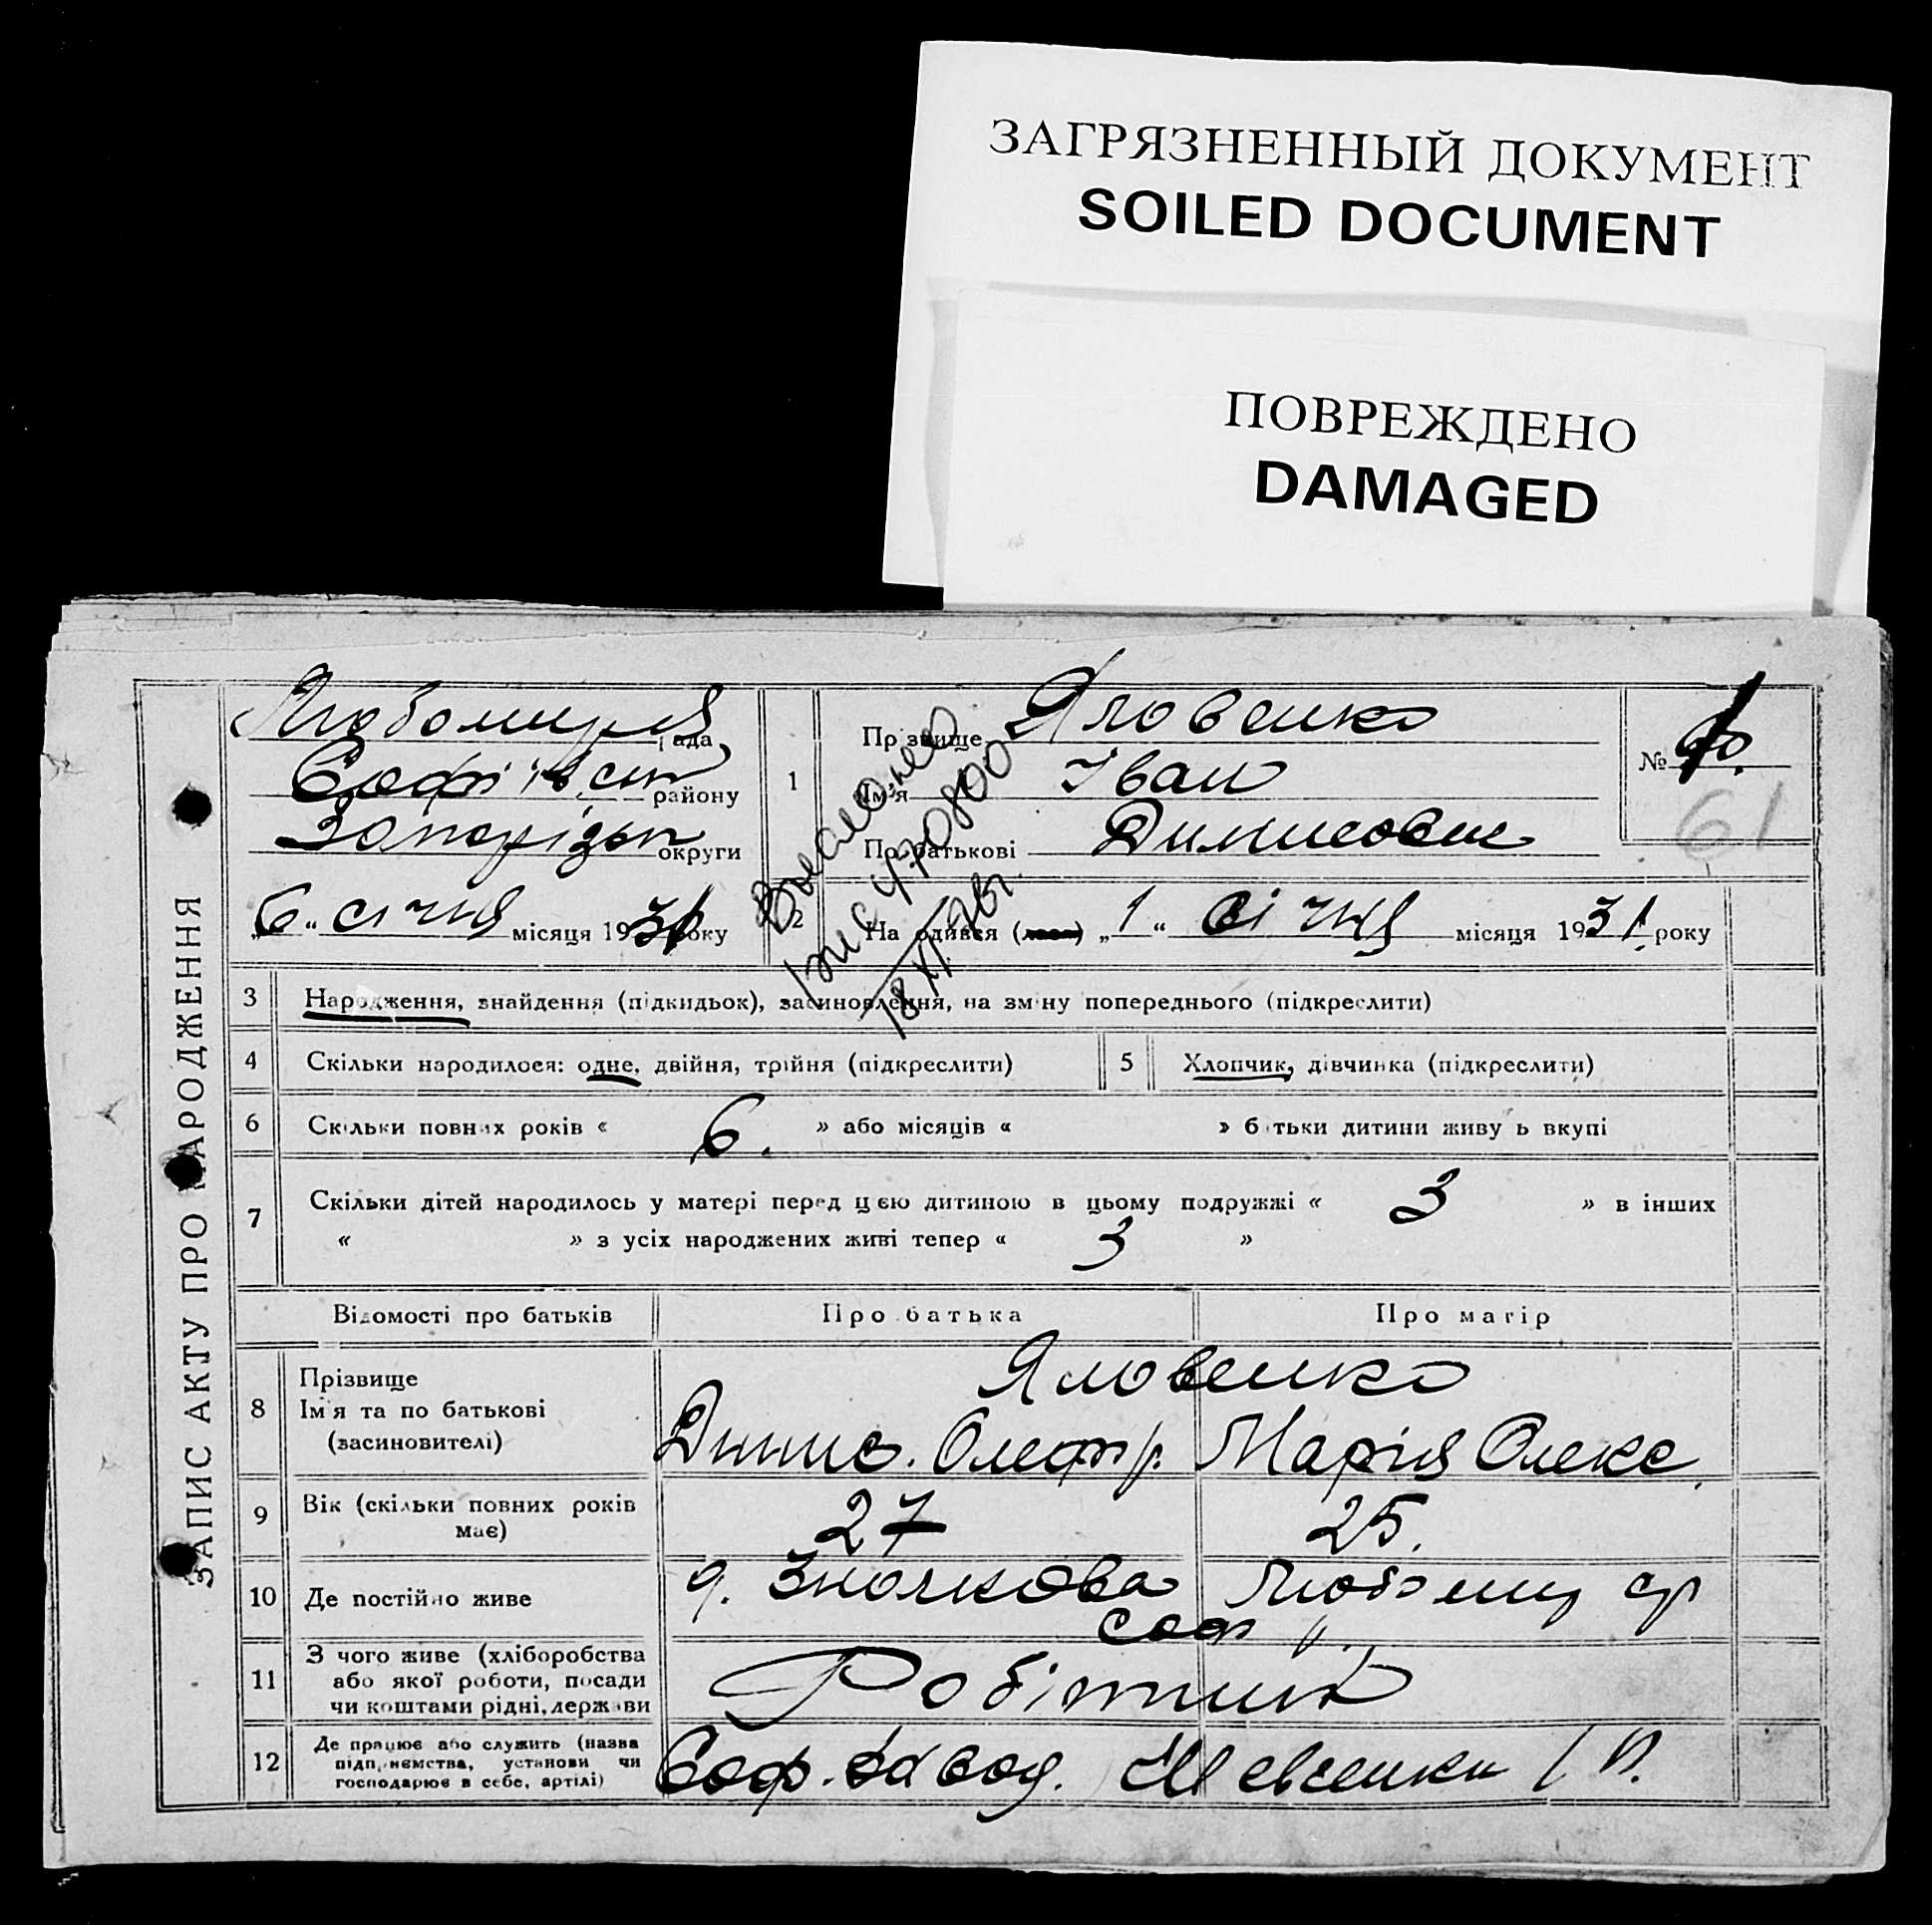 ЗАГРЯЗНЕННЫЙ ДОКУМЕНТ
SOILED DOCUMENT
ПОВРЕЖДЕНО
DAMAGED
ЗАПИС АКТУ ПРО НАРОДЖЕННЯ
рада
Софіївськ району
Запорізьк округи
„6“ січня місяця 1931 року
1
Прізвище Яловенко
Ім'я Іван
По батькові Динисович
№
61
2
На одився (лась) „1“ січня місяця 1931 року
18/XI
3 Народження, знайдення (підкидьок), засиновлення, на зміну попереднього (підкреслити)
4 Скільки народилося: одне, двійня, трійня (підкреслити)
5 Хлопчик, дівчинка (підкреслити)
6 Скільки повних років « 6. » або місяців « » батьки дитини живуть вкупі
7 Скільки дітей народилось у матері перед цією дитиною в цьому подружжі « 3 » в інших
« » з усіх народжених живі тепер « 3 »
Відомості про батьків
Про батька
Про матір
8 Прізвище
Ім'я та по батькові
(засиновителі)
Яловенко
Динис.
Марія Олекс.
9 Вік (скільки повних років
має)
27
25.
10 Де постійно живе
Соф
11 З чого живе (хліборобства
або якої роботи, посади
чи коштами рідні, держави
Робітник
12 Де працює або служить (назва
підприємства, установи чи
господарює в себе, артілі)
Соф. завод.